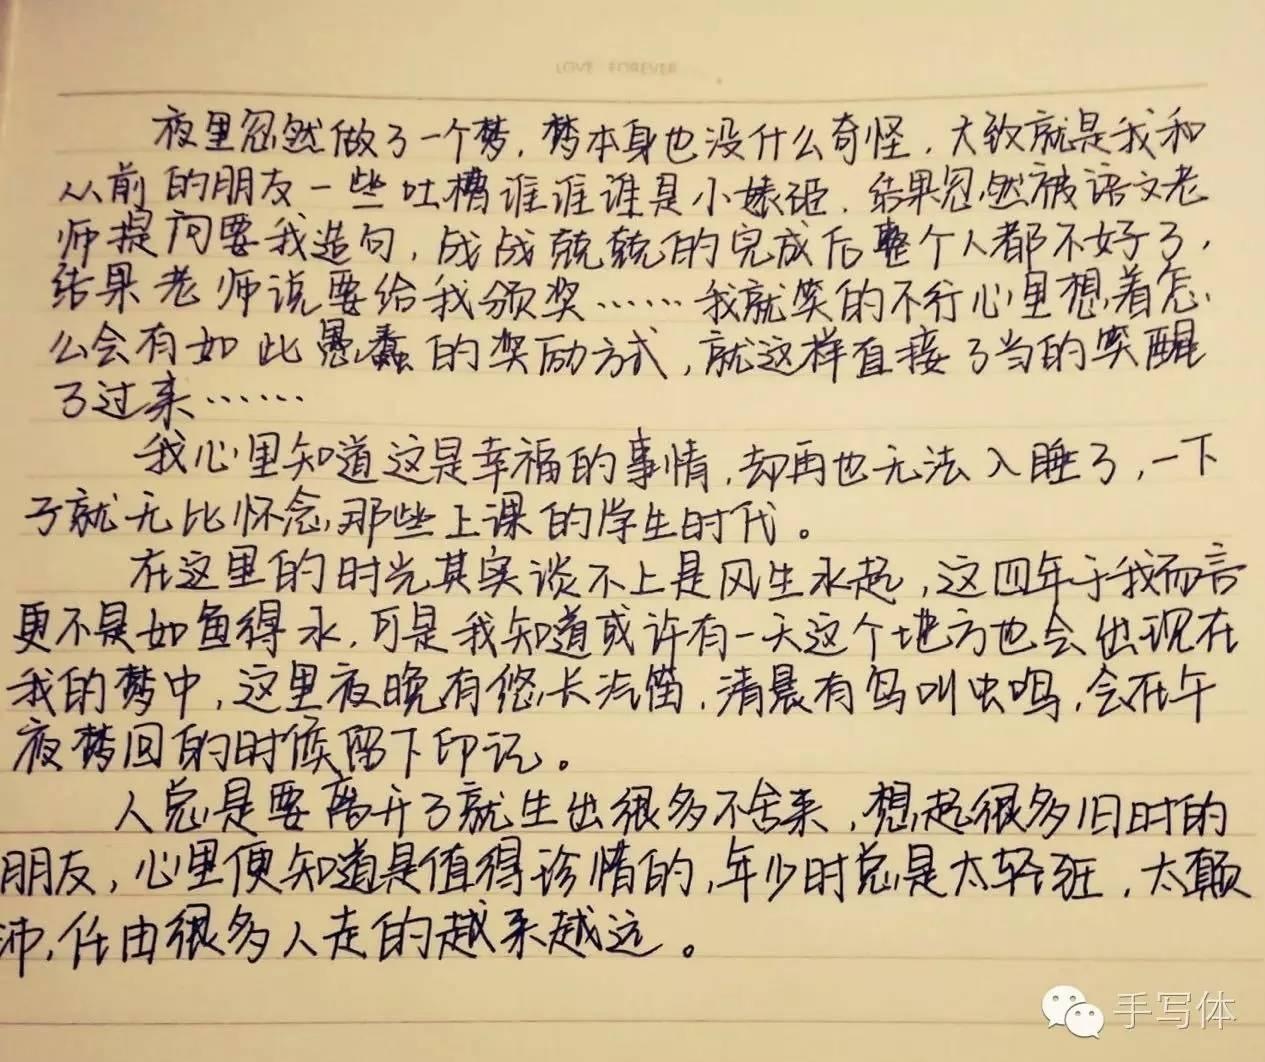 LOVE FOREVER
夜里忽然做了一个梦，梦本身也没什么奇怪，大致就是我和
从前的朋友一些吐槽谁谁谁是小婊砸，结果忽然被语文老
师提问要我造句，战战兢兢的完成后整个人都不好了，
结果老师说要给我颁奖……我就笑的不行心里想着怎
么会有如此愚蠢的奖励方式，就这样直接了当的笑醒
了过来……
我心里知道这是幸福的事情，却再也无法入睡了，一下
子就无比怀念那些上课的学生时代。
在这里的时光其实谈不上是风生水起，这四年于我而言
更不是如鱼得水，可是我知道或许有一天这个地方也会出现在
我的梦中，这里夜晚有悠长汽笛，清晨有鸟叫虫鸣，会在午
夜梦回的时候留下印记。
人总是要离开了就生出很多不舍来，想起很多旧时的
朋友，心里便知道是值得珍惜的，年少时总是太轻狂，太颠
沛，任由很多人走的越来越远。
手写体